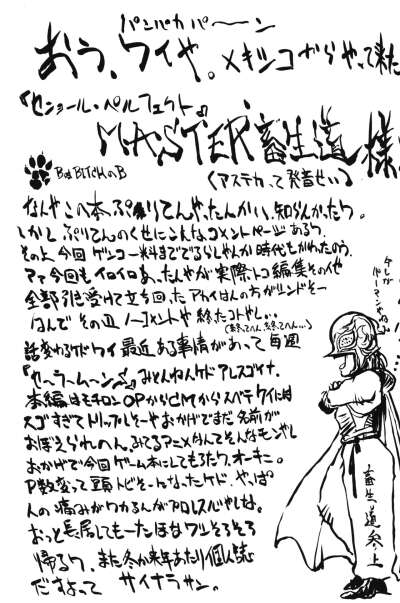 パンパカパーン
おう、ワイや。メキシコからやって来た
『センョール・ペルフェクト』
MASTER 畜生道 様
BaのBITCHのB
(アステカって発音せい)
なんやこの本、ぷりてんやったんかい、知らんかったワ。
しかし ぷりてんのくせにこんなコメントページあるワ。
その上 今回 ゲンコー料まででるらしやんか 時代もかわたのう。
マァ今回も イロイロあったんやが 実際トコ編集その他
全部引き受けて立ち回った アカイはんの方がリンドそー
なんで その辺 ノーコメントや 終たコトやし…
(終ってへん、終ってへん…)
話変わるケドワイ 最近 ある事情があって 毎週
『セーラームーン』みとんねんケドアレスゴイナ。
本編はモチロン OPからCMから スベテ ワイには
スゴすぎてトリップしそーや おかげでまだ 名前が
おぼえられのん、みてるアニメなんてそんなモンやし
おかげで今回 ゲーム本にしてもろたワ、オーキニ。
P数変って 豆頁トビそーになったケド、やっぱ
人の 痛みが ワカるんが プロレスいやしな。
おっと 長居してもーた ほな ワシ そろそろ
帰るワ、また 冬か来年あたり 個人誌
だすよって サイナラ サン。
今しが
パーマンやのう
畜生道参上